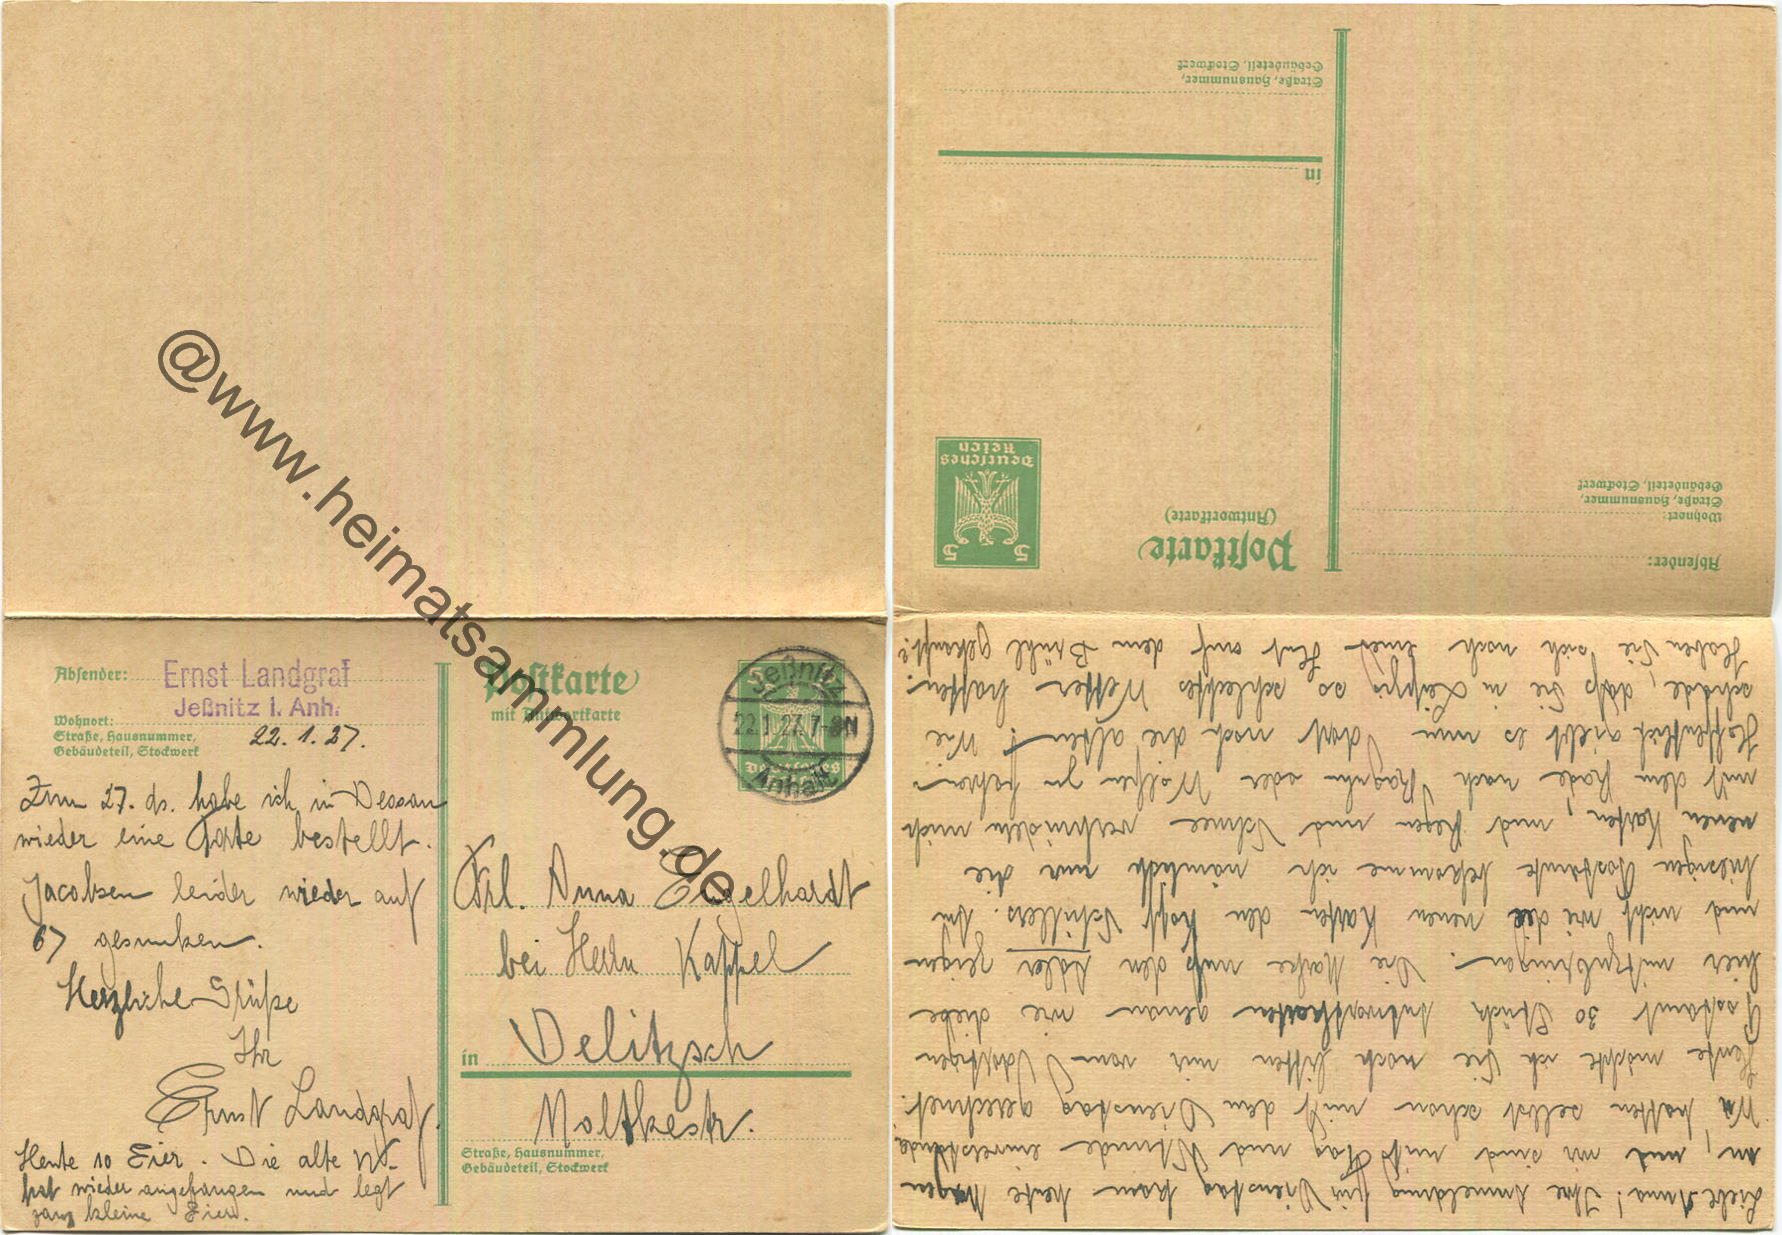 @www.heimatsammlung.de
Absender: Ernst Landgraf
Jeßnitz i. Anh.
Wohnort:
Straße, Hausnummer,
Gebäudeteil, Stockwerk
22.1.27.
Zum 27. ds. habe ich in Dessau
wieder eine Torte bestellt.
Jacobsen leider wieder auf
67 gesunken.
Herzliche Grüße
Ihr
Ernst Landgraf.
Heute 10 Eier. Die alte
hat wieder angefangen und legt
ganz kleine Eier.
Postkarte
mit Antwortkarte
Jeßnitz
22.1.27. 7-8N
Anhalt
Deutsches
Frl. Anna Engelhardt
bei Herrn Kappel
in Delitzsch
Moltkestr.
Straße, Hausnummer,
Gebäudeteil, Stockwerk
Absender:
Wohnort:
Straße, Hausnummer,
Gebäudeteil, Stockwerk
Postkarte
(Antwortkarte)
5 5
Deutsches
Reich
in
Straße, Hausnummer,
Gebäudeteil, Stockwerk
Liebe Anna! Ihre Anmeldung für Dienstag kam heute Morgen
an, und wir sind mit Tag und Stunde einverstanden.
Wir hatten selbst schon mit dem Dienstag gerechnet.
Heute möchte ich Sie noch bitten mir vom dortigen
Postamt 30 Stück Antwortkarten genau wie diese
hier mitzubringen. Die Marke muß den Adler zeigen
und nicht wie die neuen Karten den Kopf Schillers. Am
hiesigen Postamte bekomme ich nämlich nur die
neuen Karten, und Regen und Schnee verhindern mich
mit dem Rade nach Raguhn oder Wolfen zu fahren.
Hoffentlich giebt es nun dort noch die alten! Wie
schade, daß Sie in Leipzig so schlechtes Wetter hatten.
Haben Sie sich noch einen Hut auf dem Brühl gekauft?